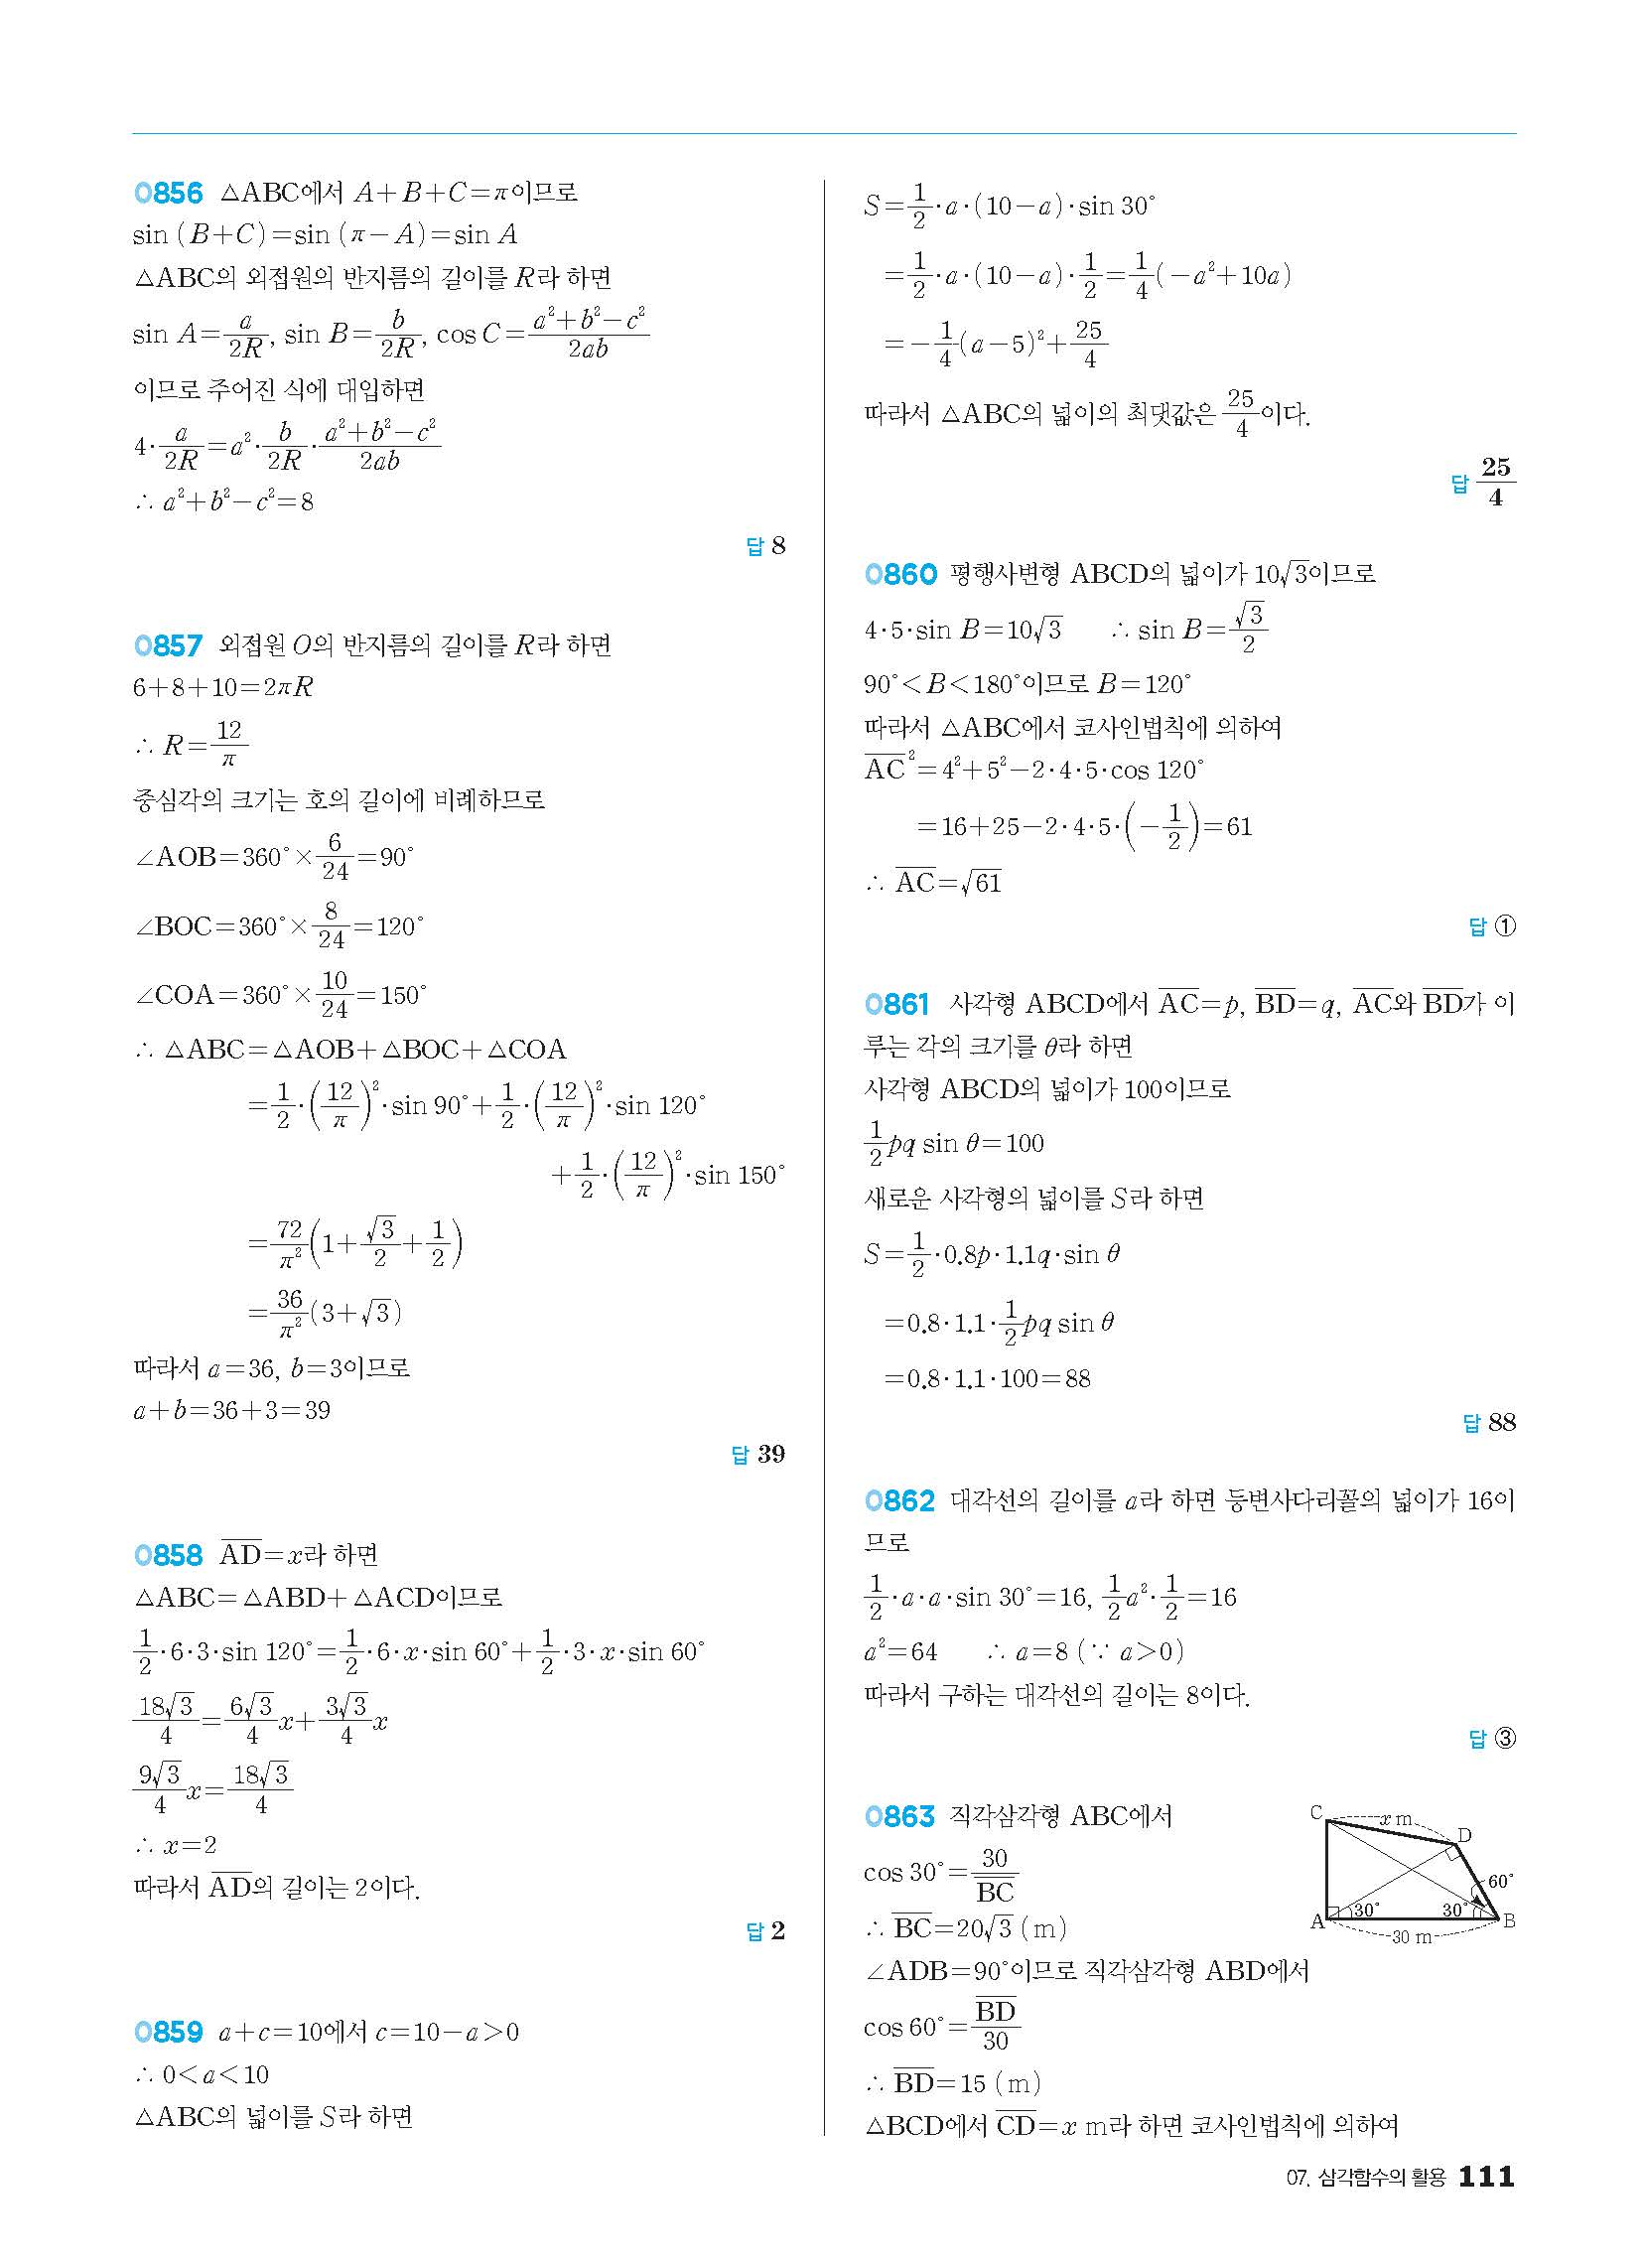 0856 △ABC에서 A+B+C=π이므로
sin (B+C)=sin (π-A)=sin A
△ABC의 외접원의 반지름의 길이를 R라 하면
sin A=a/2R, sin B=b/2R, cos C=(a²+b²-c²)/2ab
이므로 주어진 식에 대입하면
4·a/2R=a²·b/2R·(a²+b²-c²)/2ab
∴ a²+b²-c²=8
답 8
0857 외접원 O의 반지름의 길이를 R라 하면
6+8+10=2πR
∴ R=12/π
중심각의 크기는 호의 길이에 비례하므로
∠AOB=360°×6/24=90°
∠BOC=360°×8/24=120°
∠COA=360°×10/24=150°
∴ △ABC=△AOB+△BOC+△COA
=1/2·(12/π)²·sin 90°+1/2·(12/π)²·sin 120°
+1/2·(12/π)²·sin 150°
=72/π²(1+√3/2+1/2)
=36/π²(3+√3)
따라서 a=36, b=3이므로
a+b=36+3=39
답 39
0858 A̅D̅=x라 하면
△ABC=△ABD+△ACD이므로
1/2·6·3·sin 120°=1/2·6·x·sin 60°+1/2·3·x·sin 60°
18√3/4=6√3/4 x+3√3/4 x
9√3/4 x=18√3/4
∴ x=2
따라서 A̅D̅의 길이는 2이다.
답 2
0859 a+c=10에서 c=10-a>0
∴ 0<a<10
△ABC의 넓이를 S라 하면
S=1/2·a·(10-a)·sin 30°
=1/2·a·(10-a)·1/2=1/4(-a²+10a)
=-1/4(a-5)²+25/4
따라서 △ABC의 넓이의 최댓값은 25/4이다.
답 25/4
0860 평행사변형 ABCD의 넓이가 10√3이므로
4·5·sin B=10√3 ∴ sin B=√3/2
90°<B<180°이므로 B=120°
따라서 △ABC에서 코사인법칙에 의하여
A̅C̅²=4²+5²-2·4·5·cos 120°
=16+25-2·4·5·(-1/2)=61
∴ A̅C̅=√61
답 ①
0861 사각형 ABCD에서 A̅C̅=p, B̅D̅=q, A̅C̅와 B̅D̅가 이
루는 각의 크기를 θ라 하면
사각형 ABCD의 넓이가 100이므로
1/2pq sin θ=100
새로운 사각형의 넓이를 S라 하면
S=1/2·0.8p·1.1q·sin θ
=0.8·1.1·1/2pq sin θ
=0.8·1.1·100=88
답 88
0862 대각선의 길이를 a라 하면 등변사다리꼴의 넓이가 16이
므로
1/2·a·a·sin 30°=16, 1/2a²·1/2=16
a²=64 ∴ a=8 (∵ a>0)
따라서 구하는 대각선의 길이는 8이다.
답 ③
0863 직각삼각형 ABC에서
cos 30°=30/B̅C̅
∴ B̅C̅=20√3 (m)
∠ADB=90°이므로 직각삼각형 ABD에서
cos 60°=B̅D̅/30
∴ B̅D̅=15 (m)
△BCD에서 C̅D̅=x m라 하면 코사인법칙에 의하여
C
x m
D
60°
A
30°
30°
B
30 m
07. 삼각함수의 활용 111